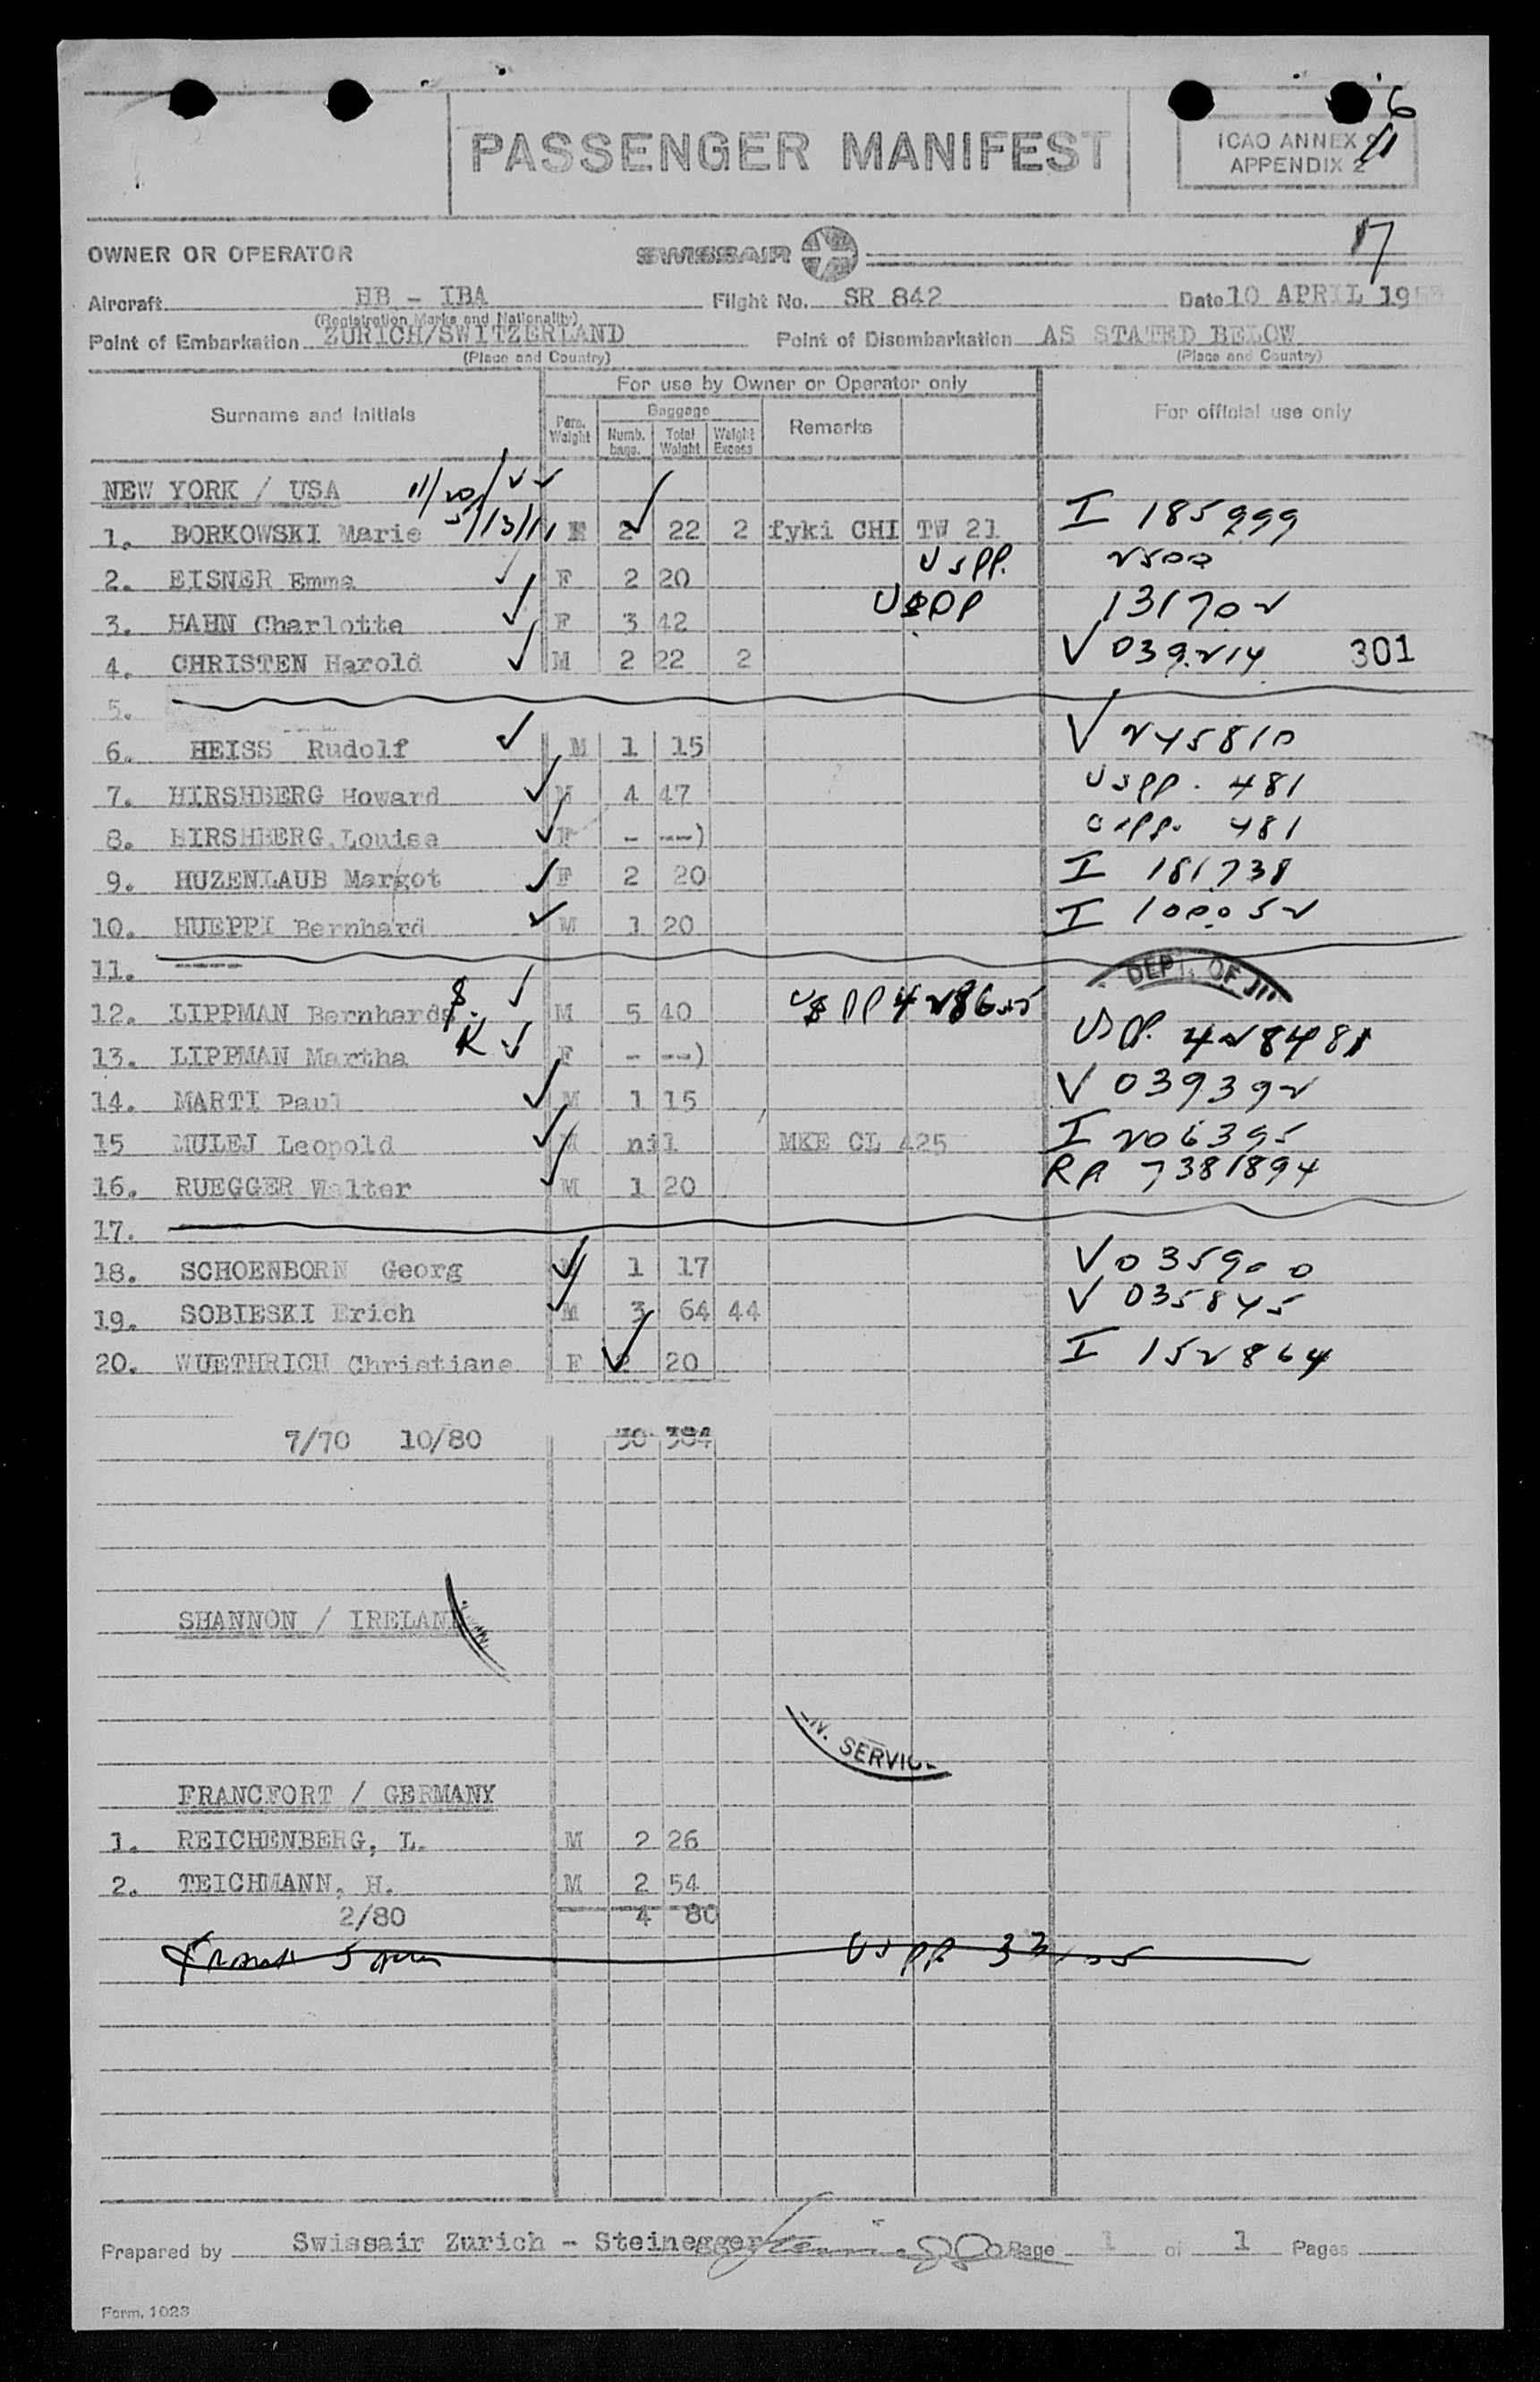 6
PASSENGER MANIFEST
ICAO ANNEX 9
APPENDIX 2
11
17
OWNER OR OPERATOR SWISSAIR
Aircraft HB - IBA Flight No. SR 842 Date 10 APRIL 195
(Registration Marks and Nationality)
Point of Embarkation ZURICH/SWITZERLAND Point of Disembarkation AS STATED BELOW
(Place and Country) (Place and Country)
For use by Owner or Operator only
Surname and Initials Pers. Weight Baggage Numb. bags. Total Weight Weight Excess Remarks For official use only
NEW YORK / USA 11/20/
1. BORKOWSKI Marie 5/13/11 F 2 22 2 fyki CHI TW 21 I 185999
2. EISNER Emma F 2 20 USPP. 2500
3. HAHN Charlotte F 3 42 USPP 131702
4. CHRISTEN Harold M 2 22 2 V 039214 301
5.
6. HEISS Rudolf M 1 15 V 245810
7. HIRSHBERG Howard M 4 47 USPP. 481
8. HIRSHBERG Louise F - --) USPP. 481
9. HUZENLAUB Margot F 2 20 I 181738
10. HUEPPI Bernhard M 1 20 I 100052
11. ----
DEPT. OF
12. LIPPMAN Bernhard S. M 5 40 US PP 428625
13. LIPPMAN Martha K F - --) US PP. 428481
14. MARTI Paul M 1 15 V 039392
15 MULEJ Leopold M nil MKE CL 425 I 206395
16. RUEGGER Walter M 1 20 RA 7381894
17.
18. SCHOENBORN Georg M 1 17 V 035900
19. SOBIESKI Erich M 3 64 44 V 035845
20. WUETHRICH Christiane F 2 20 I 152864
7/70 10/80 30 384
SHANNON / IRELAND
SERVICE
FRANCFORT / GERMANY
1. REICHENBERG, L. M 2 26
2. TEICHMANN, H. M 2 54
2/80 4 80
US PP
Prepared by Swissair Zurich - Steinegger Page 1 of 1 Pages
Form. 1023